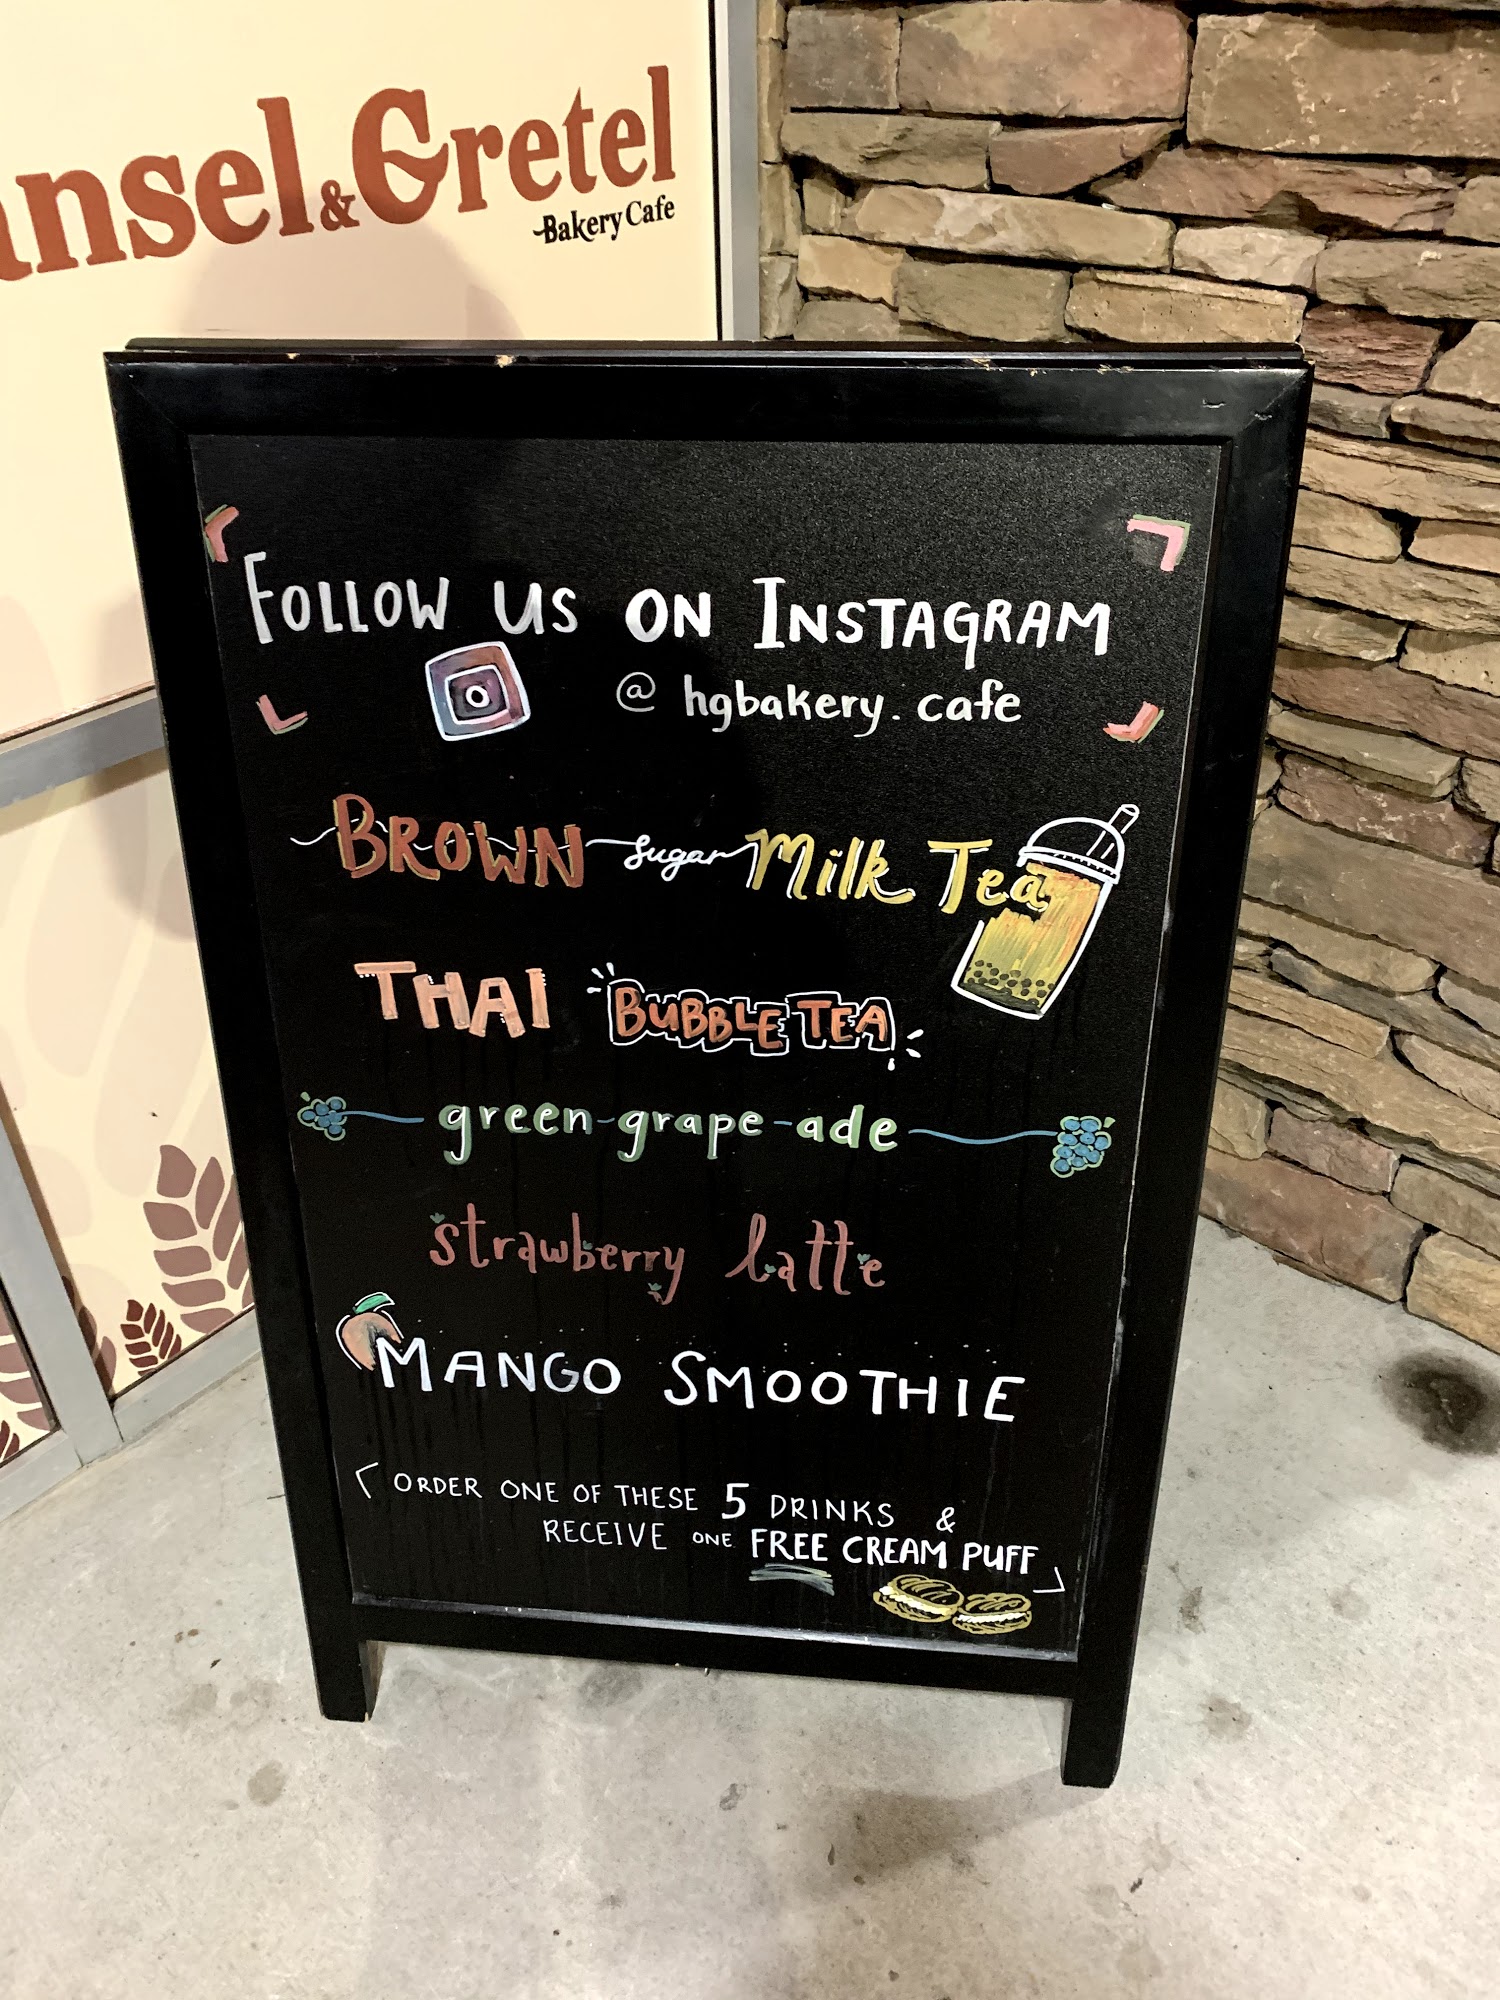 ansel & Gretel
Bakery Cafe
FOLLOW US ON INSTAGRAM
@ hgbakery.cafe
BROWN sugar Milk Tea
THAI BUBBLE TEA
green-grape-ade
strawberry latte
MANGO SMOOTHIE
ORDER ONE OF THESE 5 DRINKS &
RECEIVE ONE FREE CREAM PUFF